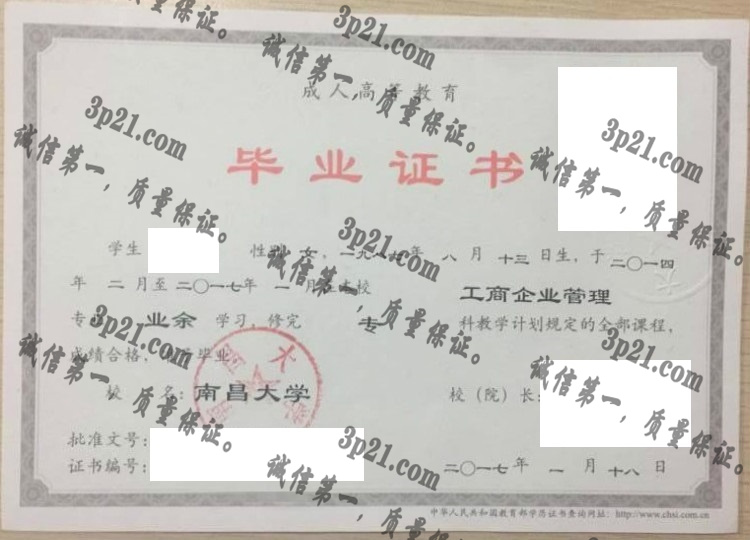 成人高等教育
毕业证书
学生 性别 女, 一九 年 八 月 十三 日生, 于 二〇一四
年 二 月至 二〇一七年 一 月 校 工商企业管理
专 业余 学习, 修完 专 科教学计划规定的全部课程,
成绩合格, 毕业。
校 名: 南昌大学 校（院）长:
批准文号:
证书编号: 二〇一七 年 一 月 十八 日
中华人民共和国教育部学历证书查询网址: http://www.chsi.com.cn
质量保证。
3p21.com
诚信第一，质量保证。
3p21.com
诚信第一，质量保证。
3p21.com
诚信第一，质量保证。
3p21.com
诚信第一，质量保证。
3p21.com
诚信第一，质量保证。
3p21.com
诚信第一，质量保证。
3p21.com
诚信第一，质量保证。